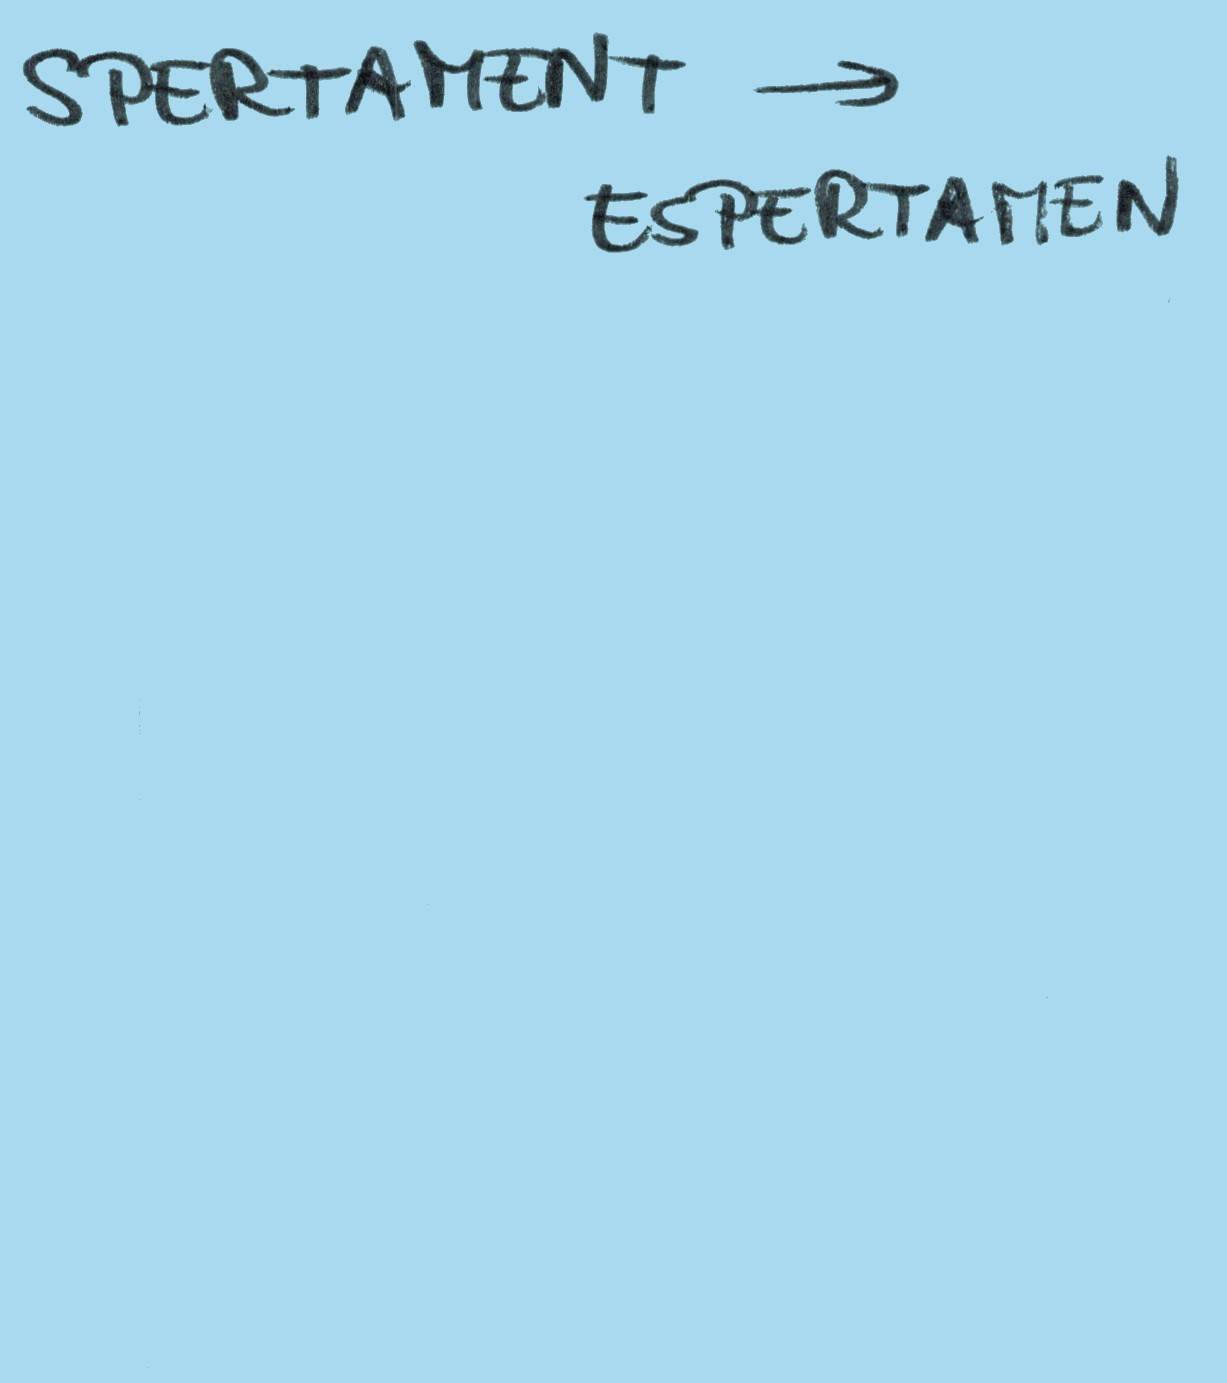 SPERTAMENT →
ESPERTAMEN